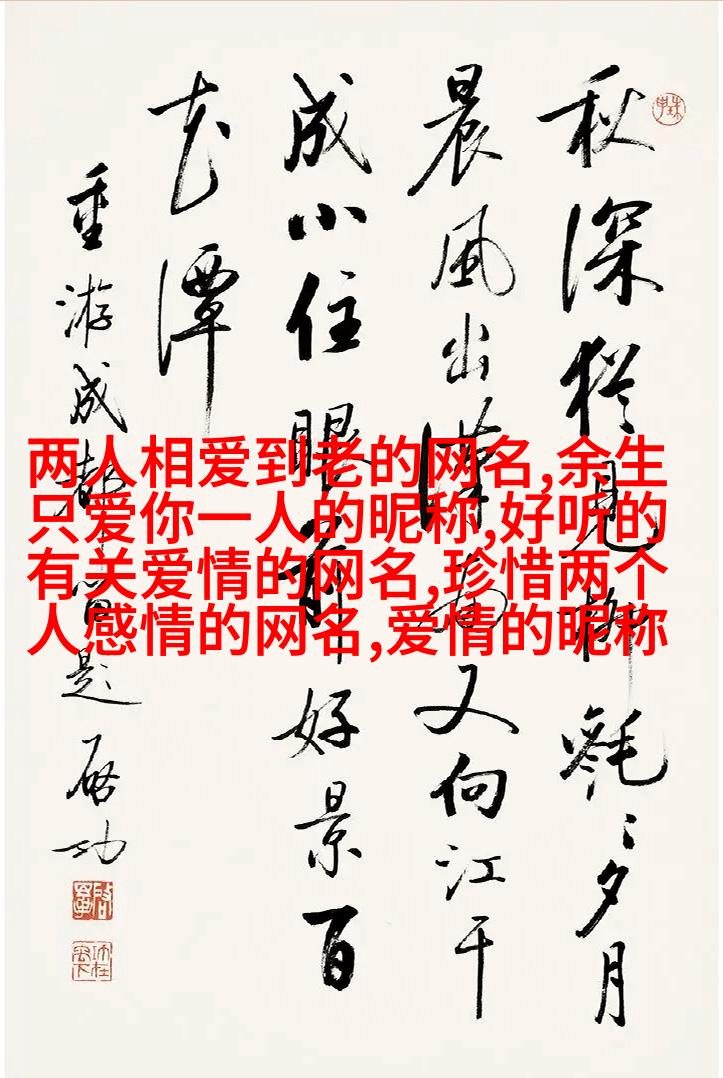 两人相爱到老的网名,余生
只爱你一人的昵称,好听的
有关爱情的网名,珍惜两个
人感情的网名,爱情的昵称
秋深猶見柳毿〻夕月
晨風出漢南又向江干
成小住眼前好景百
花潭
重游成都留題 启功